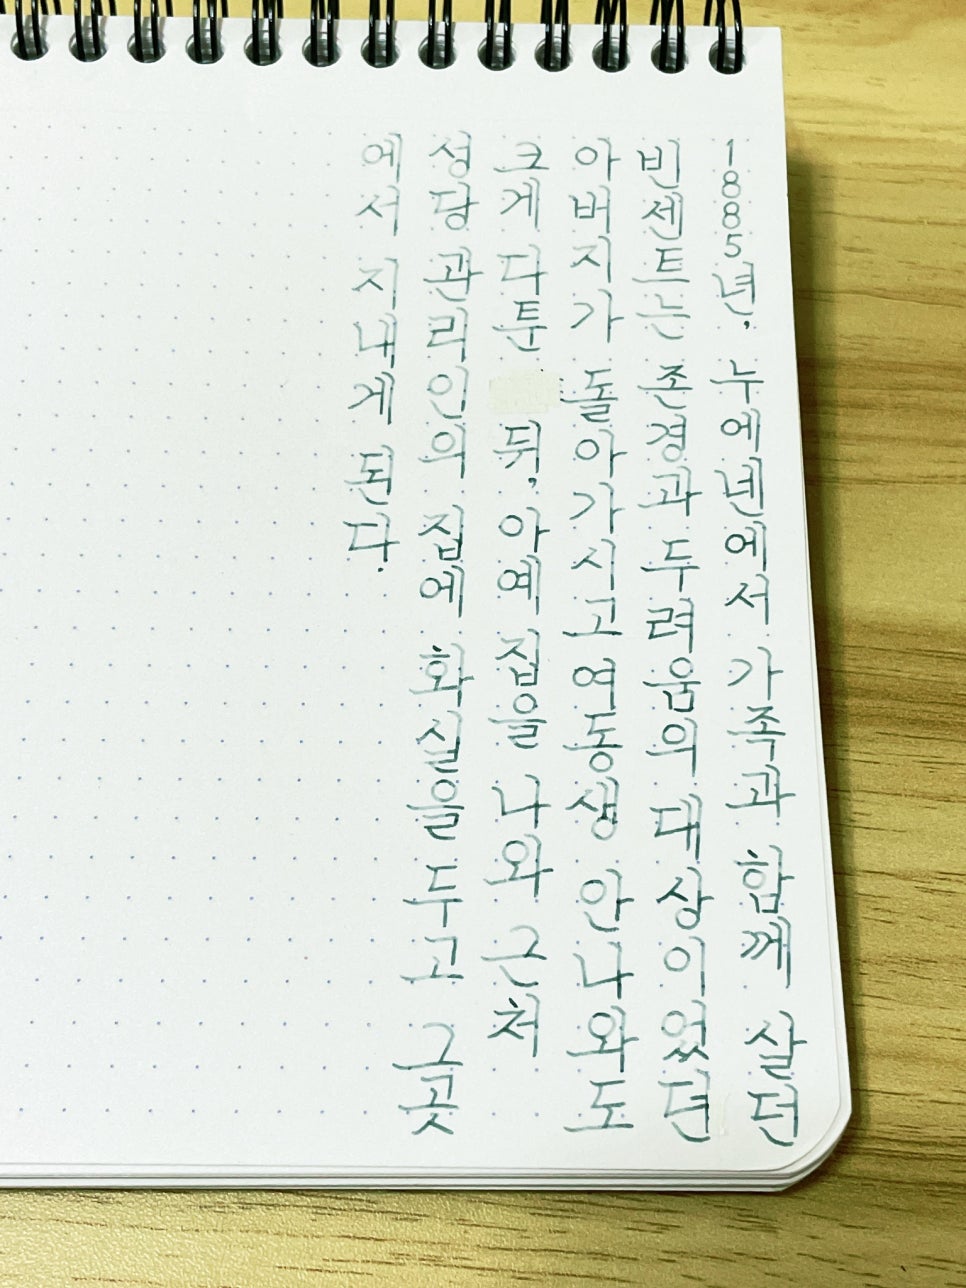 1885년, 누에넨에서 가족과 함께 살던
빈센트는 존경과 두려움의 대상이었던
아버지가 돌아가시고 여동생 안나와도
크게 다툰 뒤, 아예 집을 나와 근처
성당 관리인의 집에 화실을 두고 그곳
에서 지내게 된다.